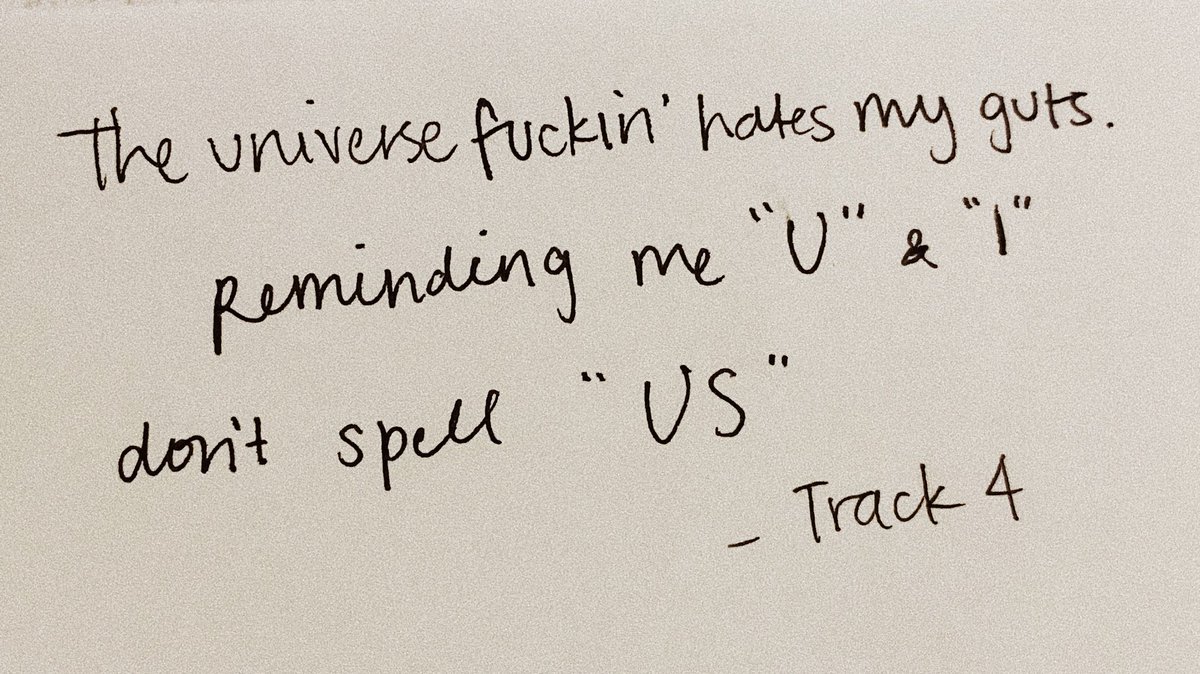 The universe fuckin' hates my guts.
Reminding me "U" & "I"
don't spell "US"
- Track 4